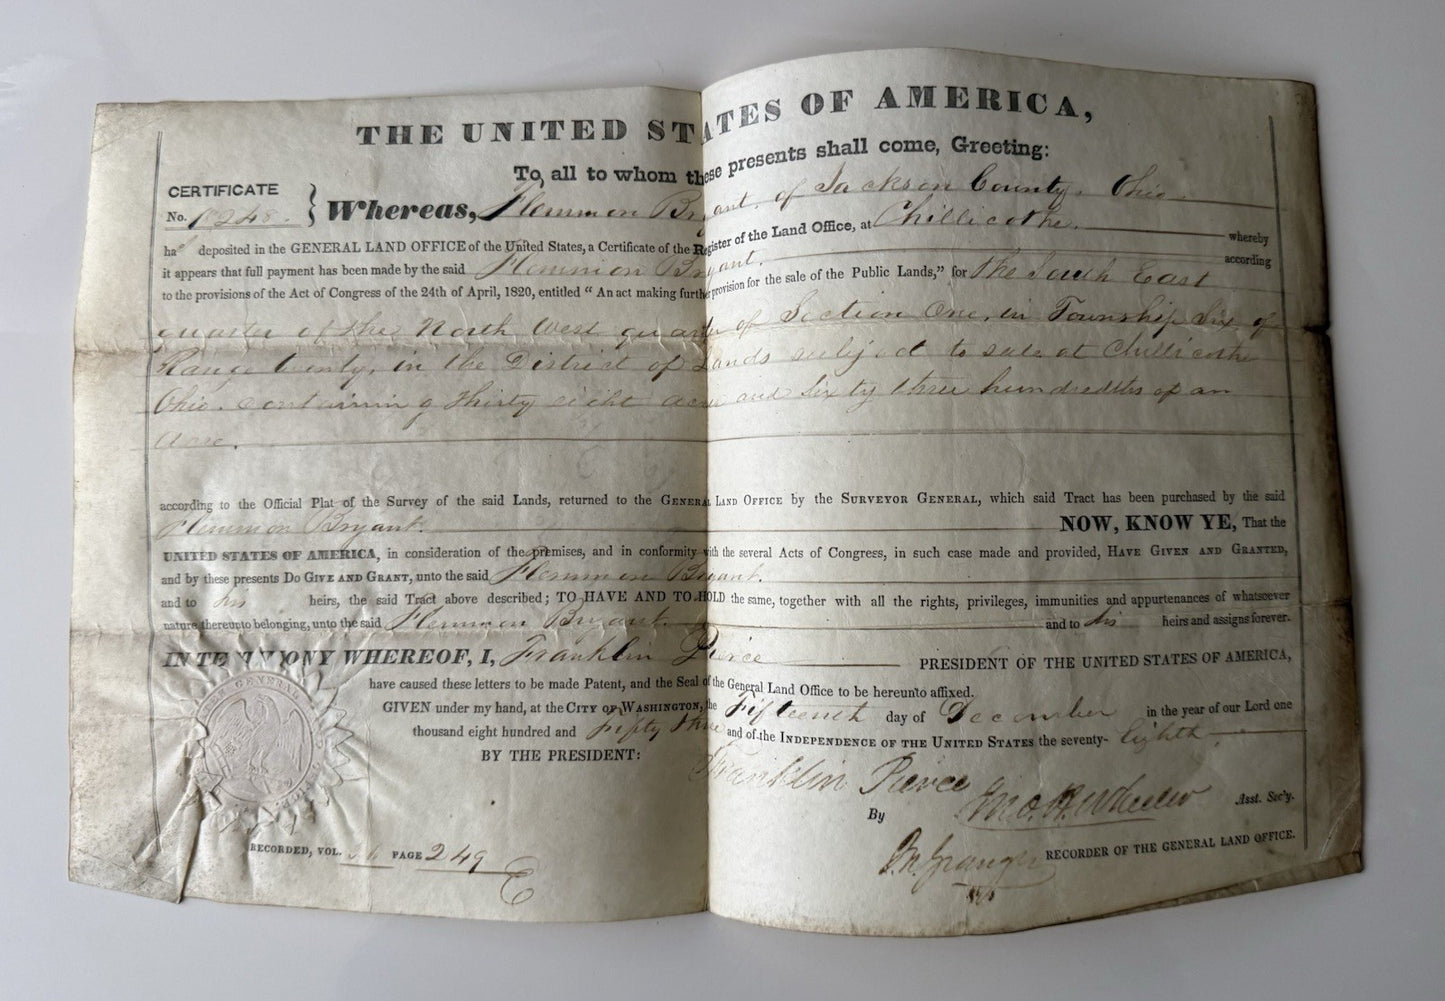 THE UNITED STATES OF AMERICA,
To all to whom these presents shall come, Greeting:
CERTIFICATE
No. 18248.
Whereas, Flemmon Bryant, of Jackson County, Ohio
had deposited in the GENERAL LAND OFFICE of the United States, a Certificate of the Register of the Land Office, at Chillicothe. whereby
it appears that full payment has been made by the said Flemmon Bryant. according
to the provisions of the Act of Congress of the 24th of April, 1820, entitled “An act making further provision for the sale of the Public Lands,” for the South East
quarter of the North West quarter of Section One, in Township Six, of
Range twenty, in the District of Lands subject to sale at Chillicothe
Ohio. containing Thirty eight acres and Sixty three hundredths of an
acre.
according to the Official Plat of the Survey of the said Lands, returned to the GENERAL LAND OFFICE by the SURVEYOR GENERAL, which said Tract has been purchased by the said
Flemmon Bryant. NOW, KNOW YE, That the
UNITED STATES OF AMERICA, in consideration of the premises, and in conformity with the several Acts of Congress, in such case made and provided, HAVE GIVEN AND GRANTED,
and by these presents DO GIVE AND GRANT, unto the said Flemmon Bryant.
and to his heirs, the said Tract above described; TO HAVE AND TO HOLD the same, together with all the rights, privileges, immunities and appurtenances of whatsoever
nature, thereunto belonging, unto the said Flemmon Bryant. and to his heirs and assigns forever.
IN TESTIMONY WHEREOF, I, Franklin Pierce PRESIDENT OF THE UNITED STATES OF AMERICA,
have caused these letters to be made Patent, and the Seal of the General Land Office to be hereunto affixed.
GIVEN under my hand, at the CITY OF WASHINGTON, the Fifteenth day of December in the year of our Lord one
thousand eight hundred and fifty three and of the INDEPENDENCE OF THE UNITED STATES the seventy-eighth
BY THE PRESIDENT: Franklin Pierce
By Jno. H. Wheeler Asst. Sec'y.
RECORDED, VOL. PAGE 249
RECORDER OF THE GENERAL LAND OFFICE.
GENERAL